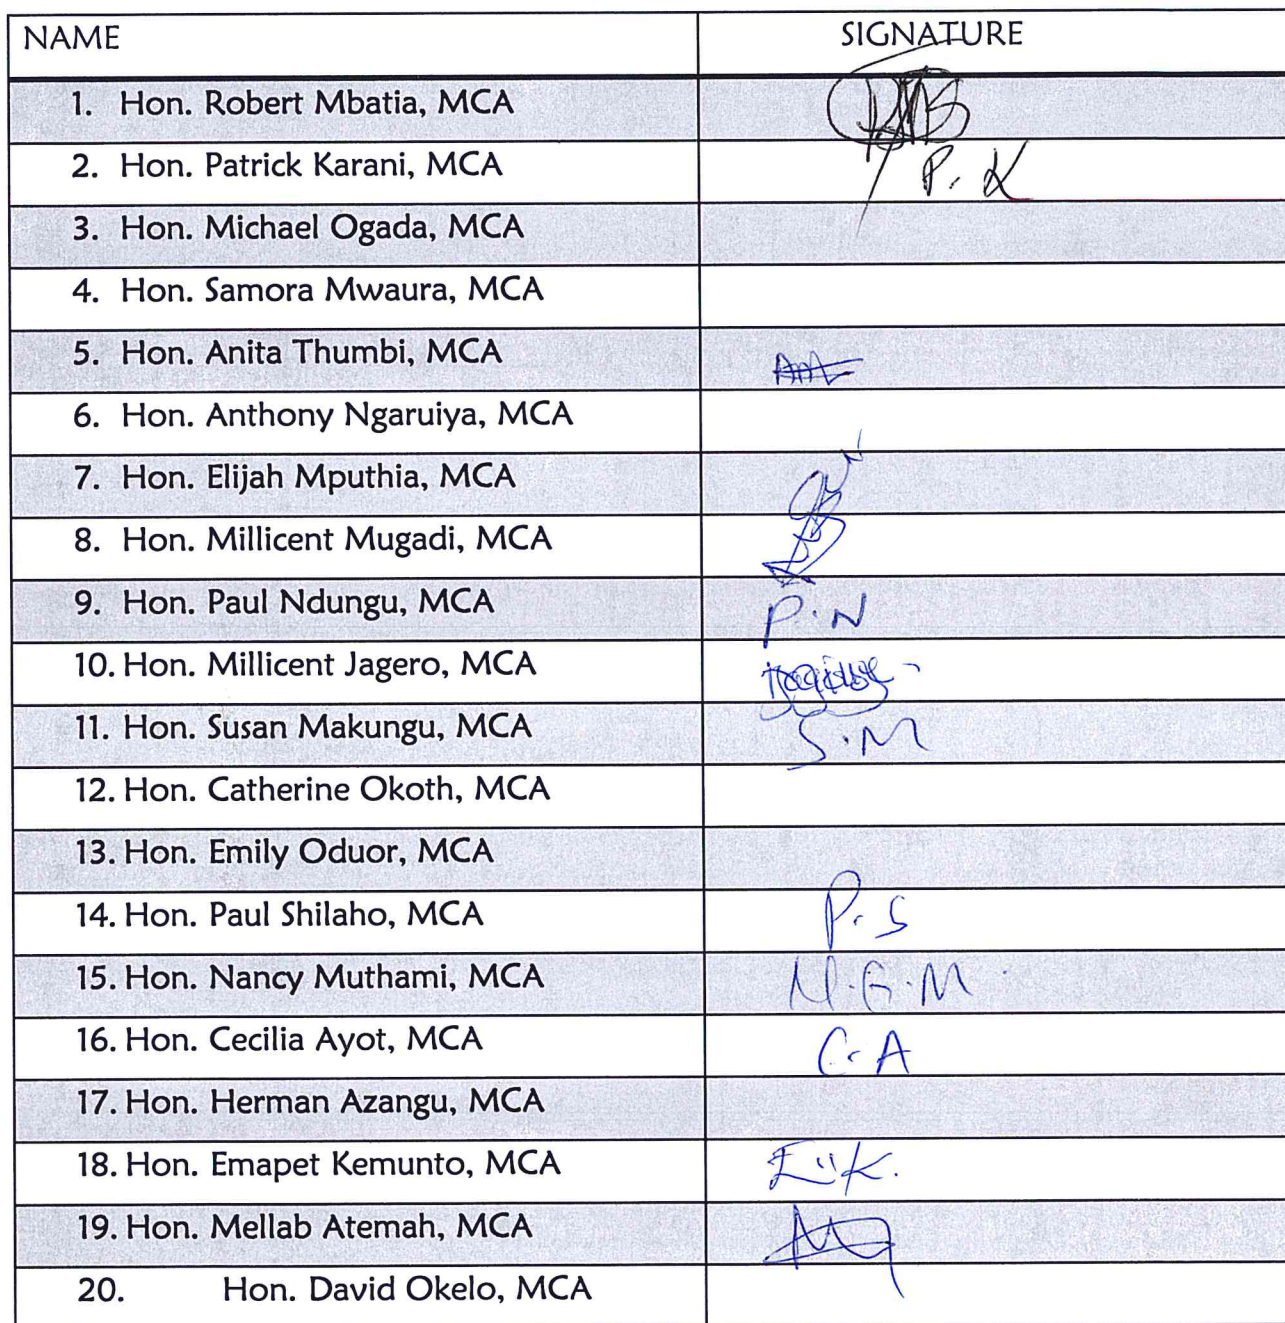 NAME SIGNATURE
1. Hon. Robert Mbatia, MCA
2. Hon. Patrick Karani, MCA P. K
3. Hon. Michael Ogada, MCA
4. Hon. Samora Mwaura, MCA
5. Hon. Anita Thumbi, MCA
6. Hon. Anthony Ngaruiya, MCA
7. Hon. Elijah Mputhia, MCA
8. Hon. Millicent Mugadi, MCA
9. Hon. Paul Ndungu, MCA P.N
10. Hon. Millicent Jagero, MCA
11. Hon. Susan Makungu, MCA S.M
12. Hon. Catherine Okoth, MCA
13. Hon. Emily Oduor, MCA
14. Hon. Paul Shilaho, MCA P.S
15. Hon. Nancy Muthami, MCA
16. Hon. Cecilia Ayot, MCA C.A
17. Hon. Herman Azangu, MCA
18. Hon. Emapet Kemunto, MCA
19. Hon. Mellab Atemah, MCA
20. Hon. David Okelo, MCA